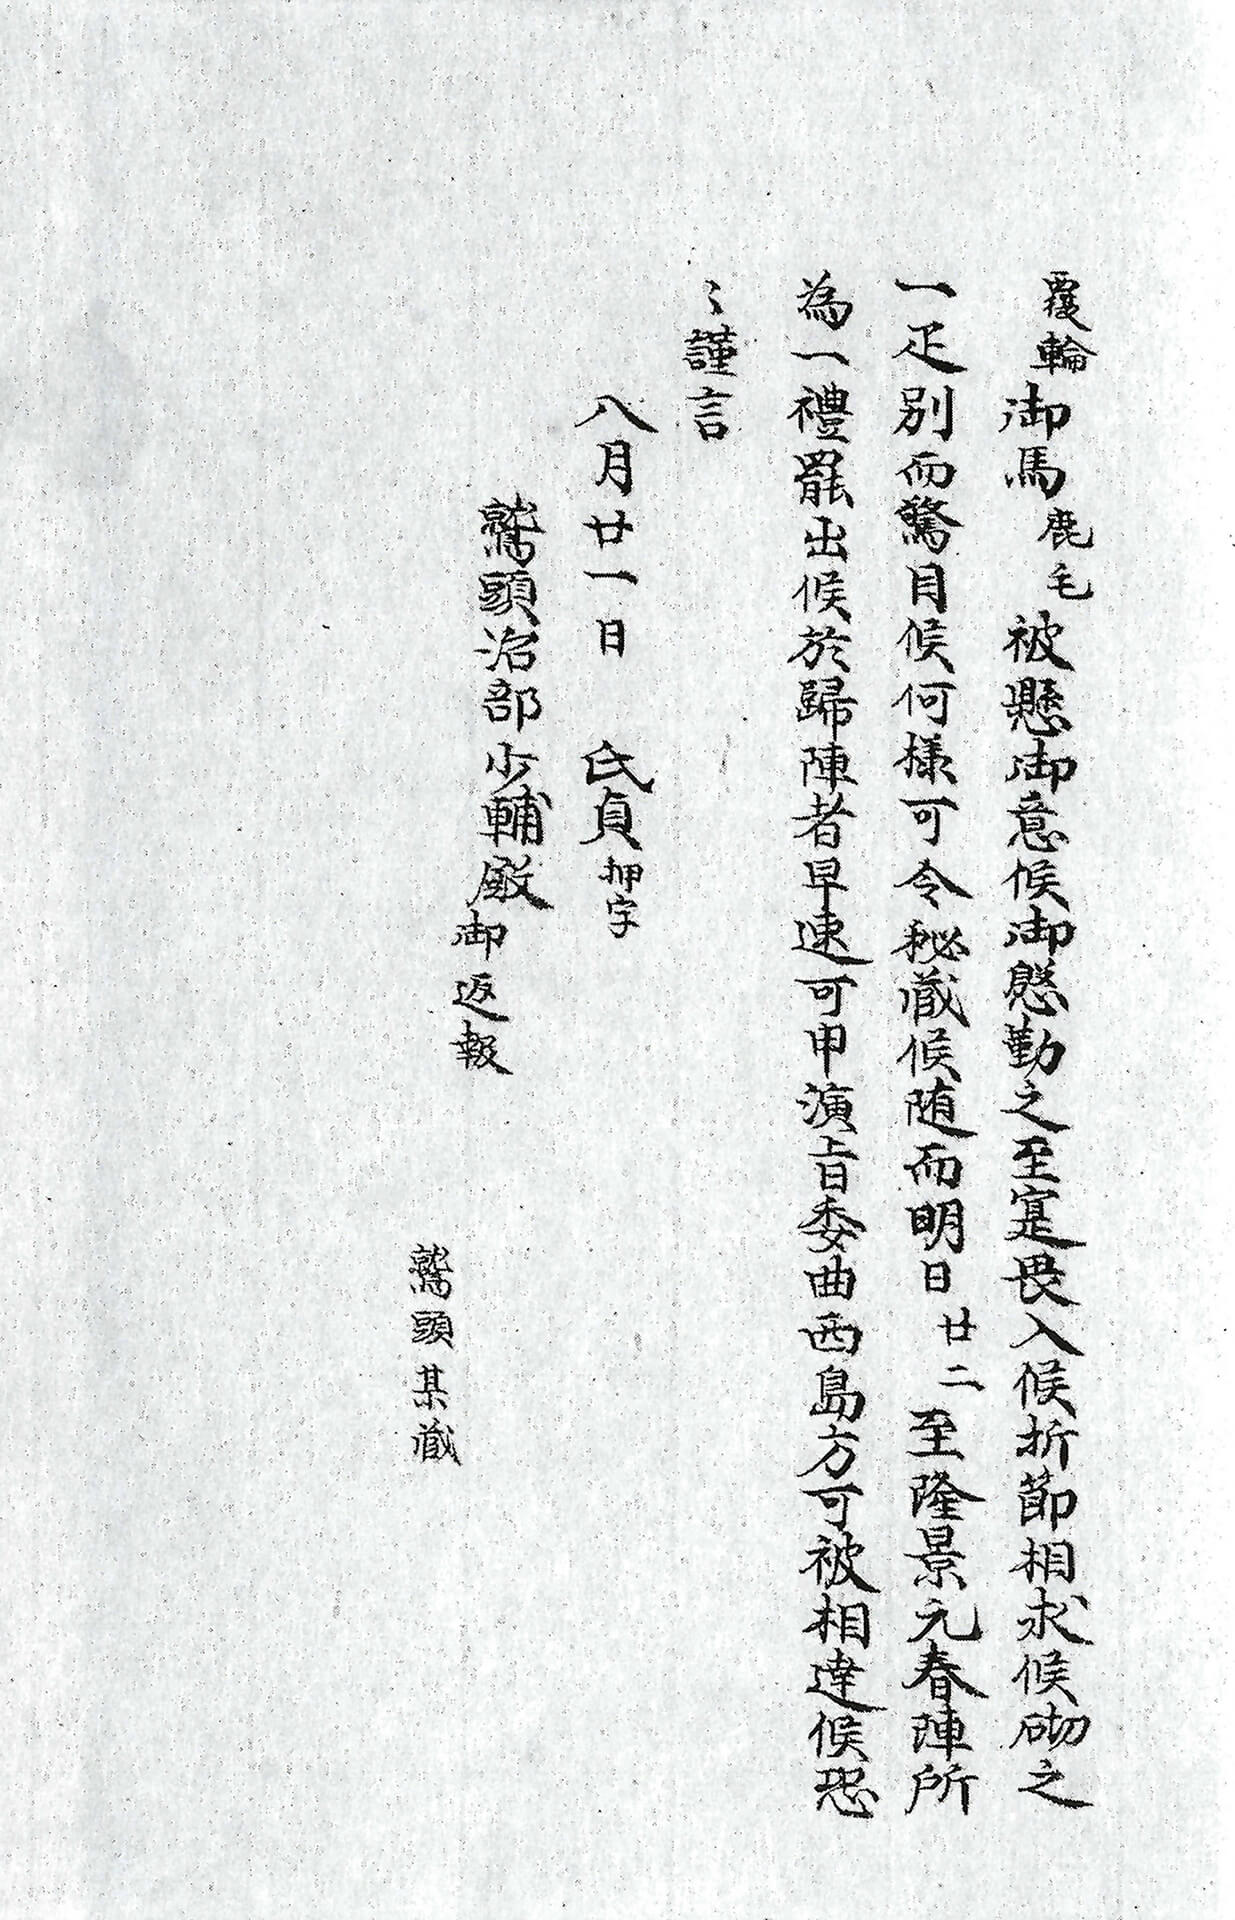 覆輪御馬鹿毛被懸御意候御慇勤之至寔畏入候折節相求候砌之
一疋別而驚目候何様可令秘蔵候随而明日廿二至隆景元春陣所
為一禮罷出候於歸陣者早速可申演旨委曲西島方可被相達候恐
〻謹言
八月廿一日 氏貞押字
鷲頭治部少輔殿御返報
鷲頭某蔵